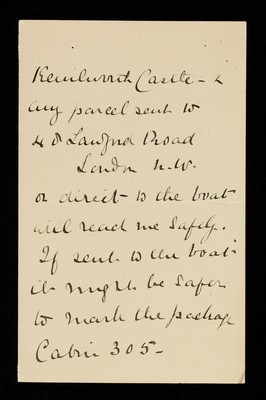 Kenilworth Castle - &
any parcel sent to
48 Lawford Road
London N.W.
or direct to the boat
will reach me safely.
If sent to the boat
it might be safer
to mark the package
Cabin 305 -